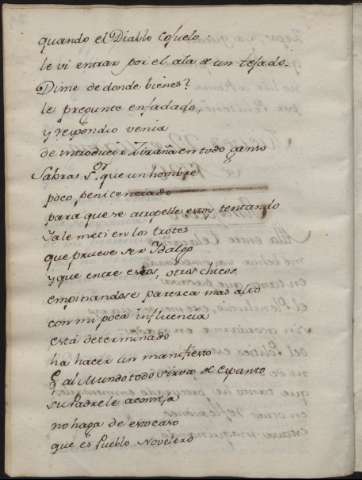 quando el Diablo Cojuelo
le vi entrar por el ala de un tejado.
Dime de donde bienes?
le pregunte enfadado,
y respondio venia
de introducir en todo quanto
Sabras Sor. que un hombre
poco penitenciado
para que se atropelle estoy tentando
Ya le meti en los trotes
que prueve ser Hidalgo
y que entre estos, otros chicos
empinandose paresca mas alto
con mi poca influencia
está determinado
ha hacer un manifiesto
q. al Mundo todo sirva de espanto
su Padre le aconseja
no haga de eso caso
que es Pueblo Novelero